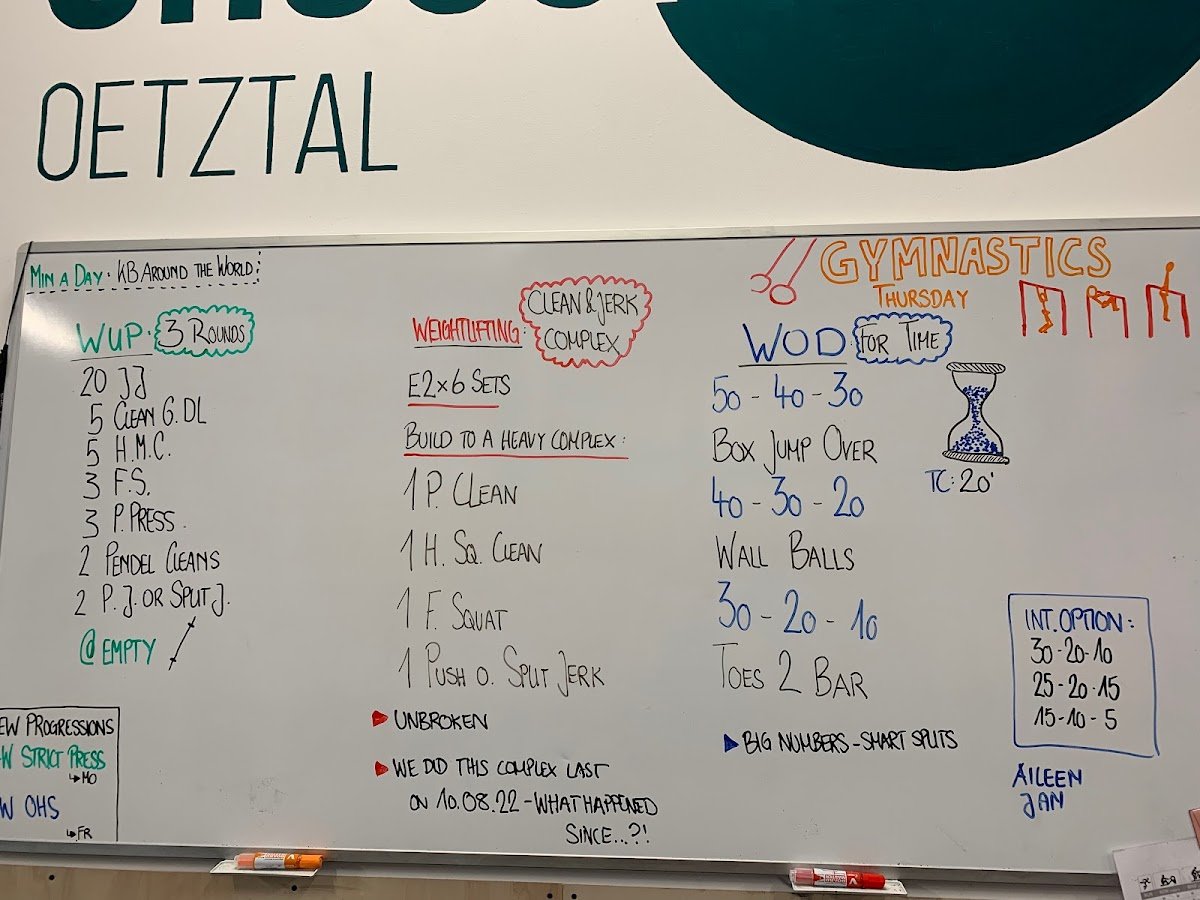 OETZTAL
MIN A DAY: KB AROUND THE WORLD:
WUP: 3 ROUNDS
20 JJ
5 CLEAN G. DL
5 H.M.C.
3 F.S.
3 P. PRESS.
2 PENDEL CLEANS
2 P. J. OR SPLIT J.
@ EMPTY
EW PROGRESSIONS
W STRICT PRESS
↳ MO
W OHS
↳ FR
WEIGHTLIFTING: CLEAN & JERK
COMPLEX
E2x6 SETS
BUILD TO A HEAVY COMPLEX:
1 P. CLEAN
1 H. SQ. CLEAN
1 F. SQUAT
1 PUSH O. SPLIT JERK
UNBROKEN
WE DID THIS COMPLEX LAST
ON 10.08.22 - WHAT HAPPONED
SINCE...?!
GYMNASTICS
THURSDAY
WOD: FOR TIME
50 - 40 - 30
BOX JUMP OVER
40 - 30 - 20
WALL BALLS
30 - 20 - 10
TOES 2 BAR
BIG NUMBERS - SMART SPLITS
TC: 20'
INT. OPTION:
30-20-10
25-20-15
15-10-5
AILEEN
JAN